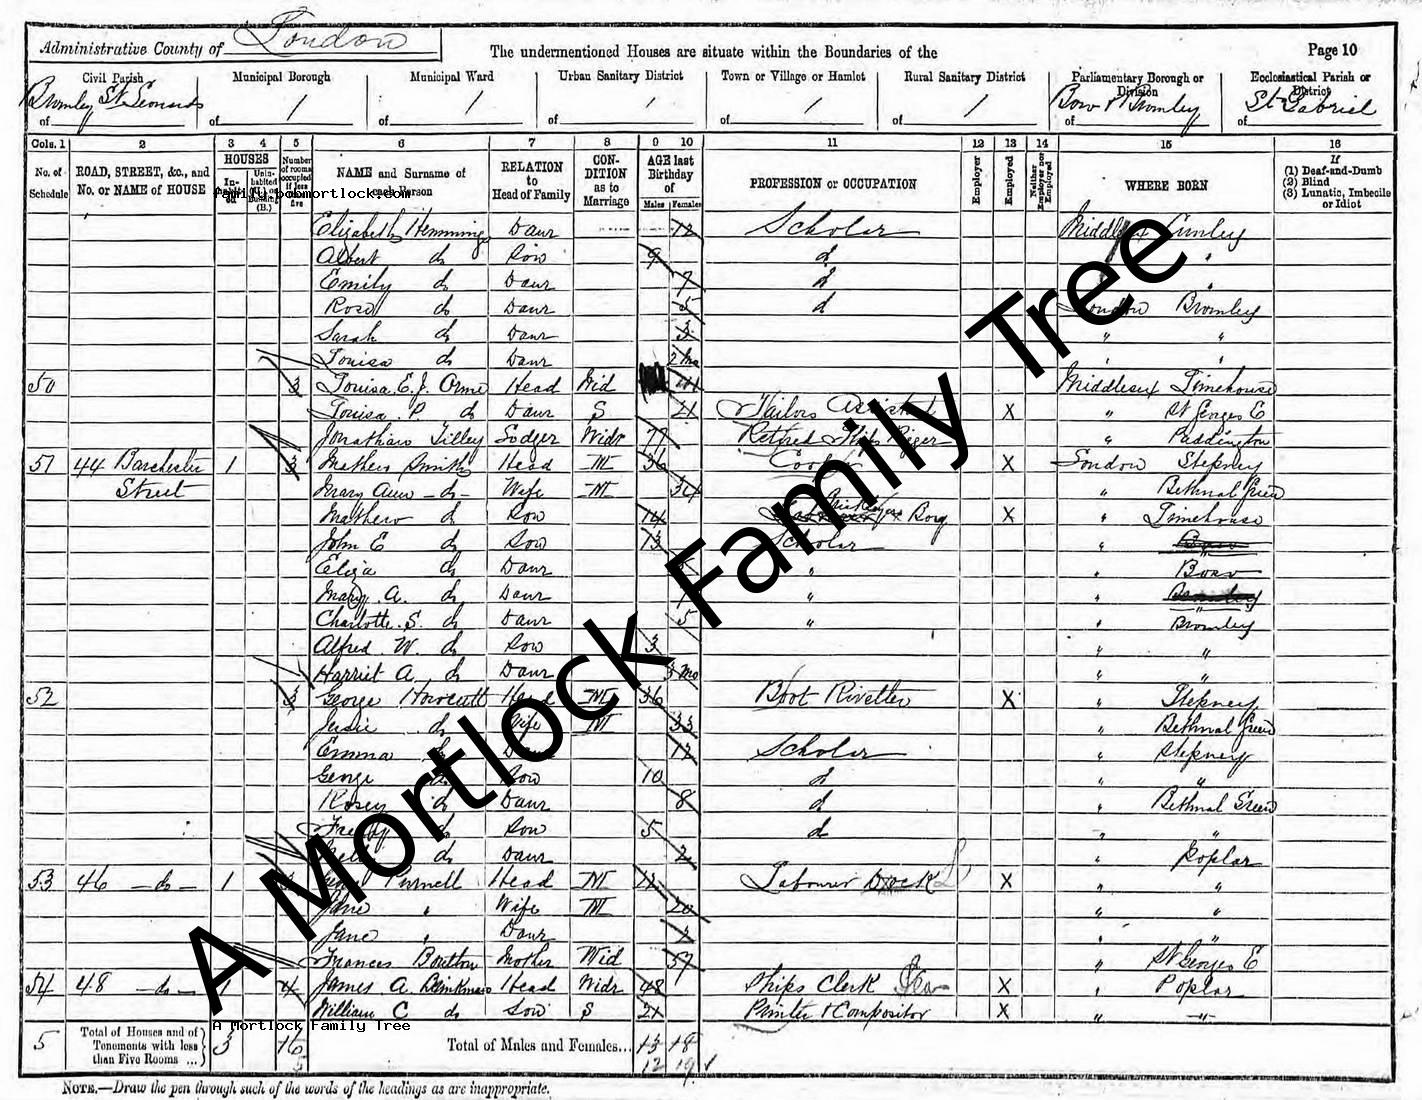 Administrative County of London
The undermentioned Houses are situate within the Boundaries of the
Page 10
Civil Parish Municipal Borough Municipal Ward Urban Sanitary District Town or Village or Hamlet Rural Sanitary District Parliamentary Borough or Division Ecclesiastical Parish or District
Bromley St Leonards Bow & Bromley St Gabriel
of of of of of of of of
Cols. 1 2 3 4 5 6 7 8 9 10 11 12 13 14 15 16
No. of Schedule ROAD, STREET, &c., and No. or NAME of HOUSE HOUSES Number of rooms occupied if less than five NAME and Surname of each Person RELATION to Head of Family CONDITION as to Marriage AGE last Birthday of Males Females PROFESSION or OCCUPATION Employer Employed Neither Employer nor Employed WHERE BORN If (1) Deaf-and-Dumb (2) Blind (3) Lunatic, Imbecile or Idiot
family.bobmortlock.com
Elizabeth Hemmings Daur 12 Scholar
Albert do Son 9 d
Emily do Daur 7 d
Rose do Daur 5 d London Bromley
Sarah do Daur 3 " "
Louisa do Daur 2 mo
50 3 Louisa E. J. Orme Head Wid 41 Middlesex Limehouse
Louisa P. do Daur S 21 Tailors Assistant X " St Georges E
Jonathan Tilley Lodger Widr 77 Retired Ships Riger " Paddington
51 44 Barchester Street 1 3 Mathew Smith Head M 36 X London Stepney
Mary Ann - do - Wife M 34 " Bethnal Green
Mathew do Son 14 Boy X " Limehouse
John E do Son 13 Scholar "
Eliza do Daur " " Bow
Mary A. do Daur " "
Charlotte S. do Daur 5 " " Bromley
Alfred W. do Son 3 " "
Harriet A. do Daur 3 mo " "
52 3 George Head M 36 Boot Rivetter X " Stepney
do Wife M 33 " Bethnal Green
Emma do Daur 12 Scholar " Stepney
George do Son 10 d " "
Rosey do Daur 8 d " Bethnal Green
do Son 5 d " "
do Daur 2 " Poplar
53 46 - do - 1 Purnell Head M Labourer Dock X " "
Jane " Wife M 20 " "
Jane " Daur " "
Frances Boulton Mother Wid 57 " St Georges E
54 48 - do - 1 4 James A. Head Widr 48 Ships Clerk X " Poplar
William C do Son S 21 Printer & Compositor X " - " -
A Mortlock Family Tree
5 Total of Houses and of Tenements with less than Five Rooms ... 3 16 Total of Males and Females... 13 18
5 12 19
NOTE.—Draw the pen through such of the words of the headings as are inappropriate.
A Mortlock Family Tree